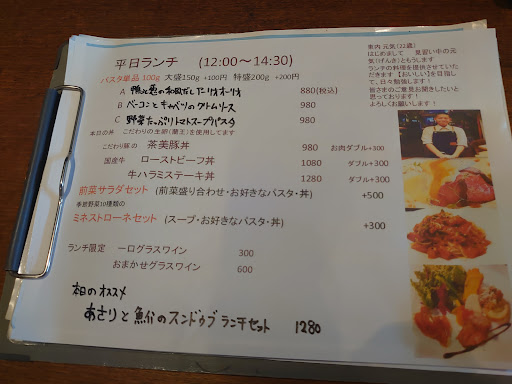 平日ランチ (12:00～14:30)
パスタ単品 100g 大盛150g +100円 特盛200g +200円
A 鴨と葱の和風だしペペロンチーノ 880(税込)
B ベーコンとキャベツのクリームソース 980
C 野菜たっぷりトマトスープパスタ 980
本日の丼 こだわりの生卵(蘭王)を使用してます
こだわり豚の 茶美豚丼 980 お肉ダブル+300
国産牛 ローストビーフ丼 1080 ダブル+300
牛ハラミステーキ丼 1280 ダブル+300
前菜サラダセット (前菜盛り合わせ・お好きなパスタ・丼) +500
季節野菜10種類の
ミネストローネセット (スープ・お好きなパスタ・丼) +300
ランチ限定 一口グラスワイン 300
おまかせグラスワイン 600
本日のオススメ
あさりと魚介のスンドゥブランチセット 1280
元気(22歳)
はじめまして 見習い中の元
気(げんき)ともうします
ランチの料理を提供させていた
だきます【おいしい】を目指し
て、日々勉強します!
皆さまのご意見お聞きしたいと
思っております!
よろしくお願いします!